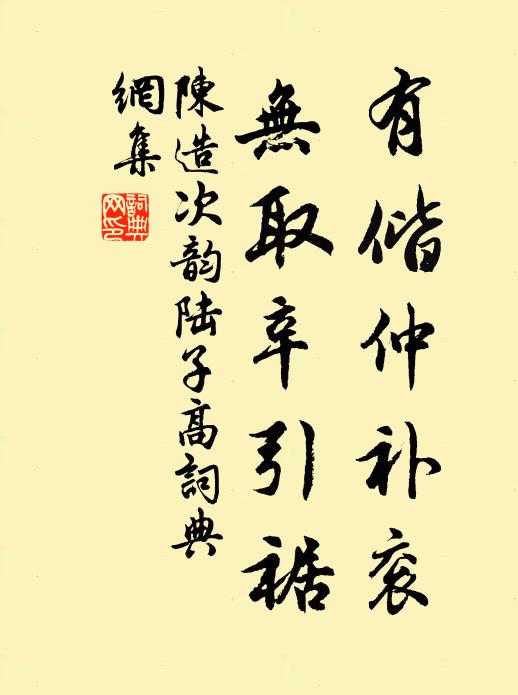 有偕仲补衮
無取辛引裾
陳造次韵陆子高詞典
網集
詞典网印